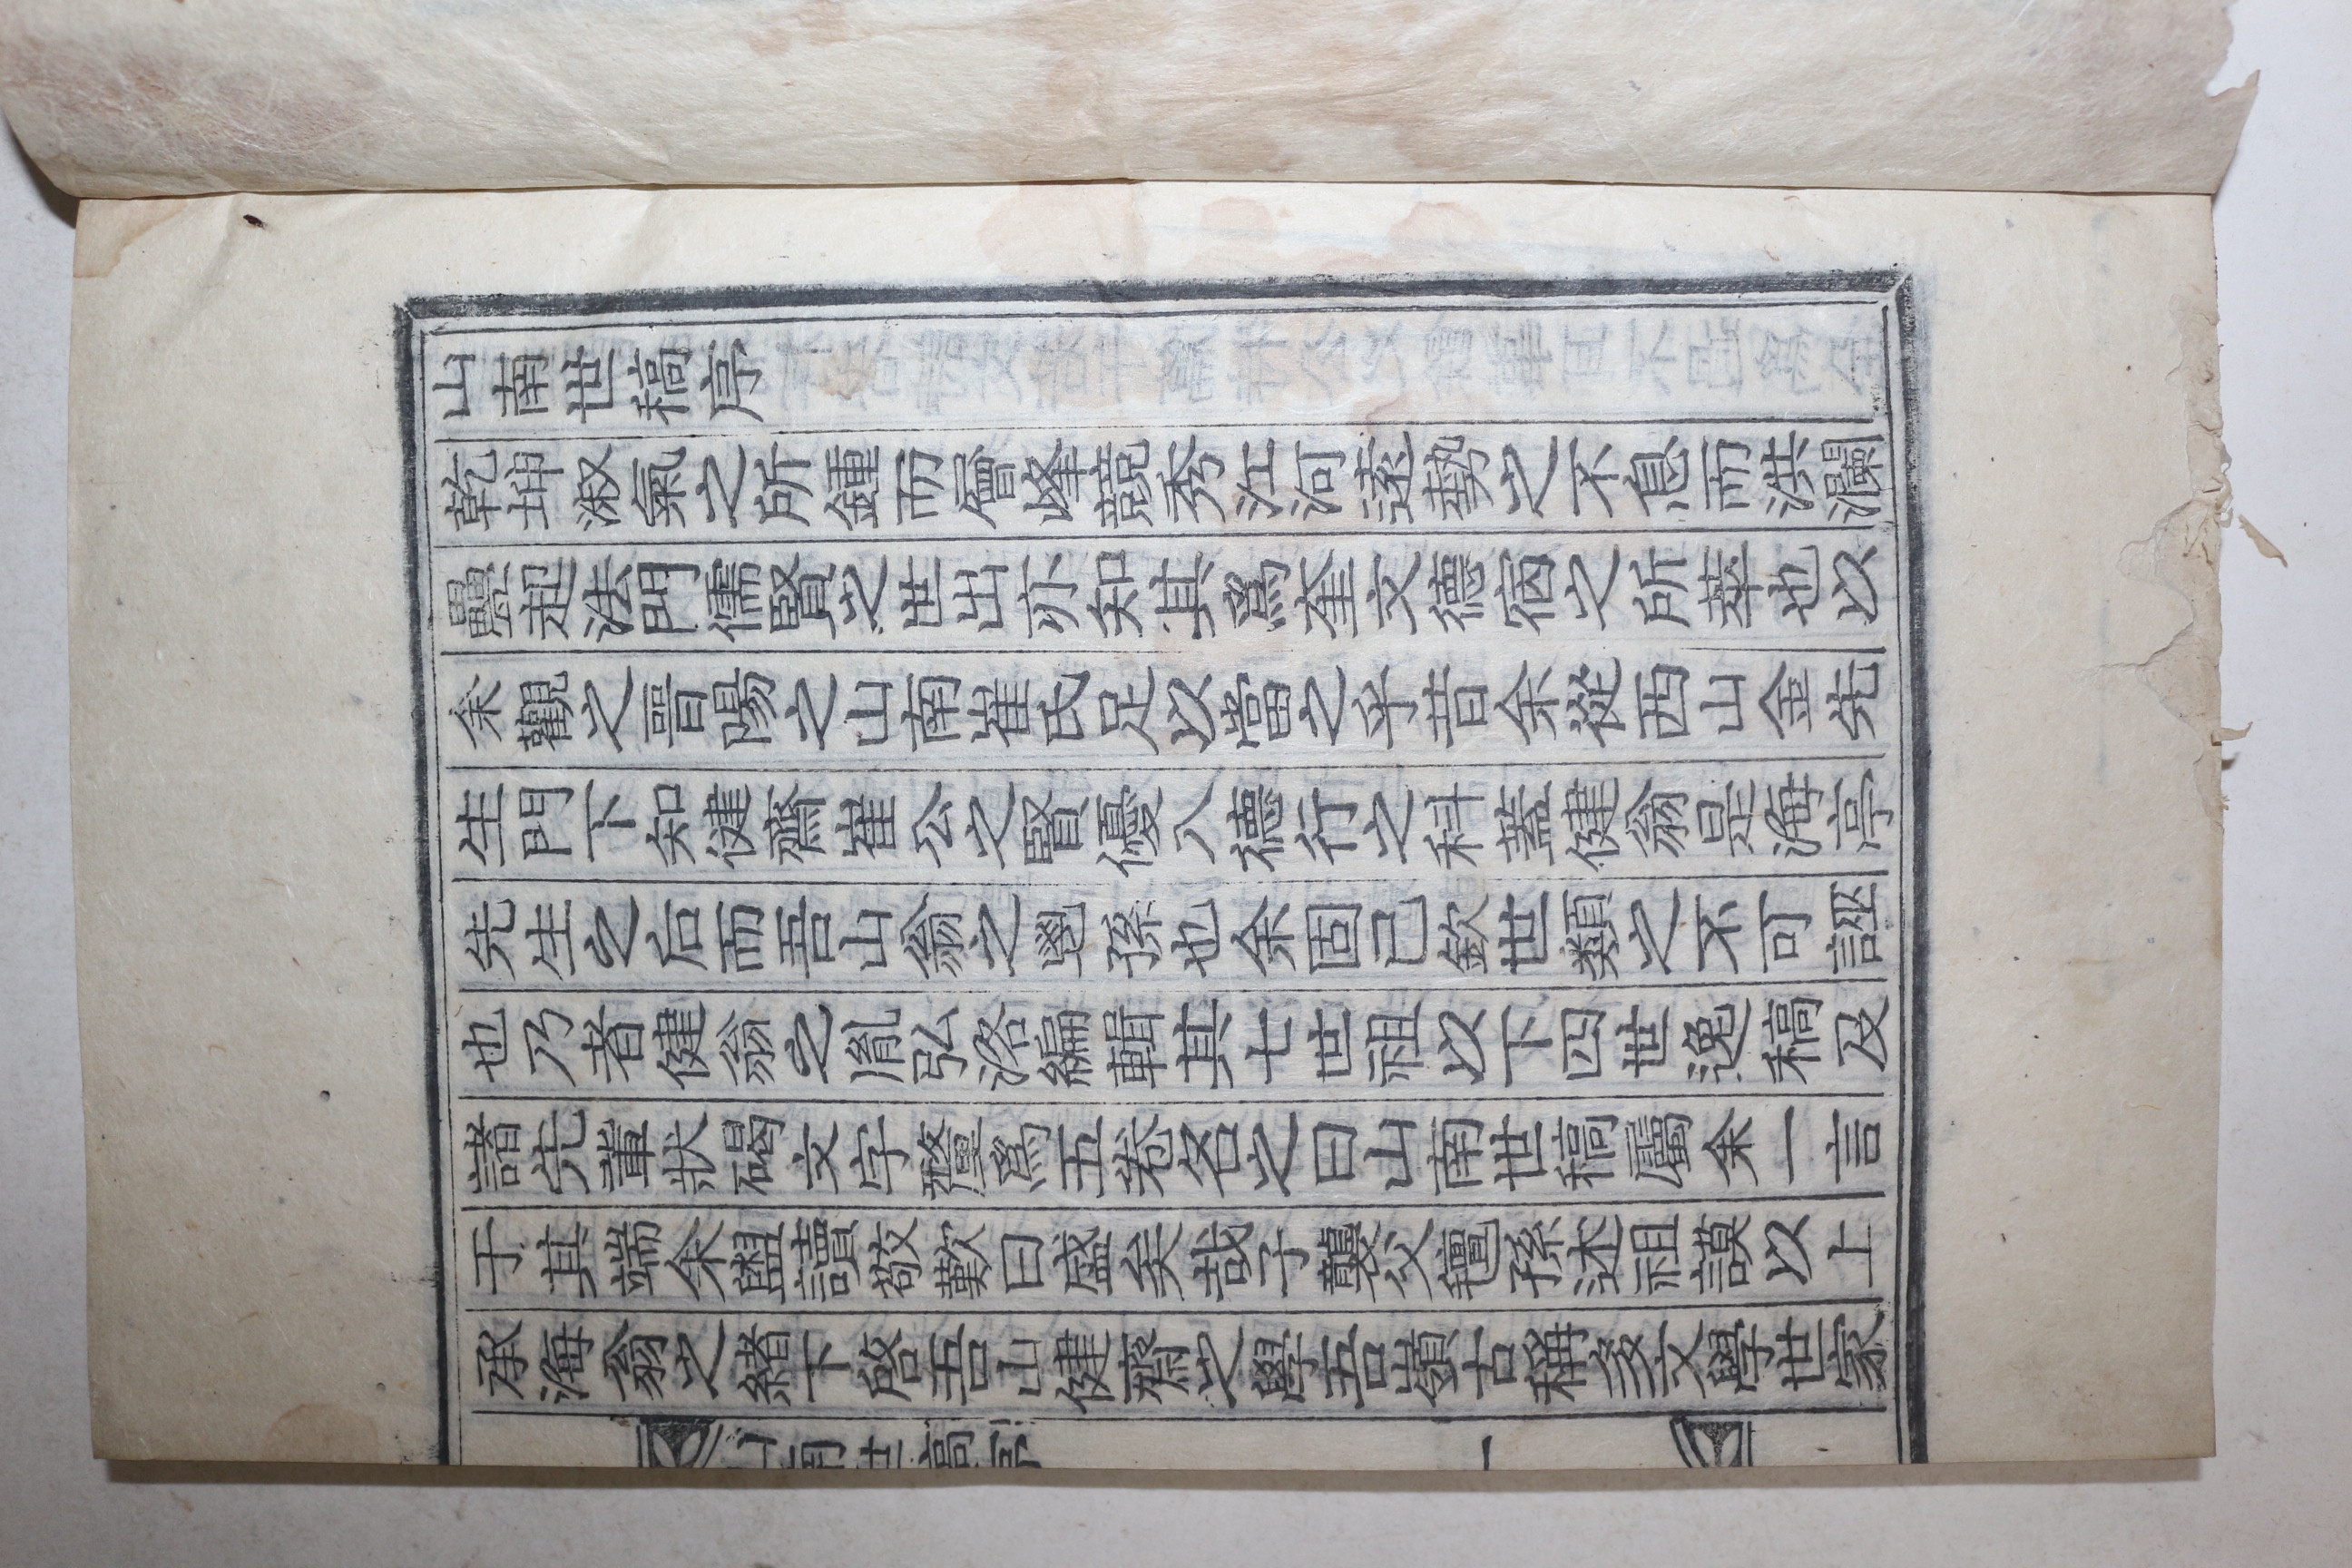 山南世稿序
乾坤淑氣之所鍾而層峰競秀江河遠勢之不息而洪瀾
疊起法門儒賢之世出亦知其爲奎文德宿之所萃也以
余觀之晉陽之山南崔氏足以當之乎昔余從西山金先
生門下知健齋崔公之賢優入德行之科蓋健翁是海亭
先生之后而吾山翁之鬯孫也余固已欽世類之不可誣
也乃者健翁之胤弘洛編輯其七世祖以下四世逸稿及
諸先輩狀碣文字釐爲五卷名之曰山南世稿屬余一言
于其端余盥讀敬歎曰盛矣哉子襲父氊孫述祖謨以上
承海翁之緖下啓吾山健齋之學吾嶺古稱多文學世家
山南世稿序
一